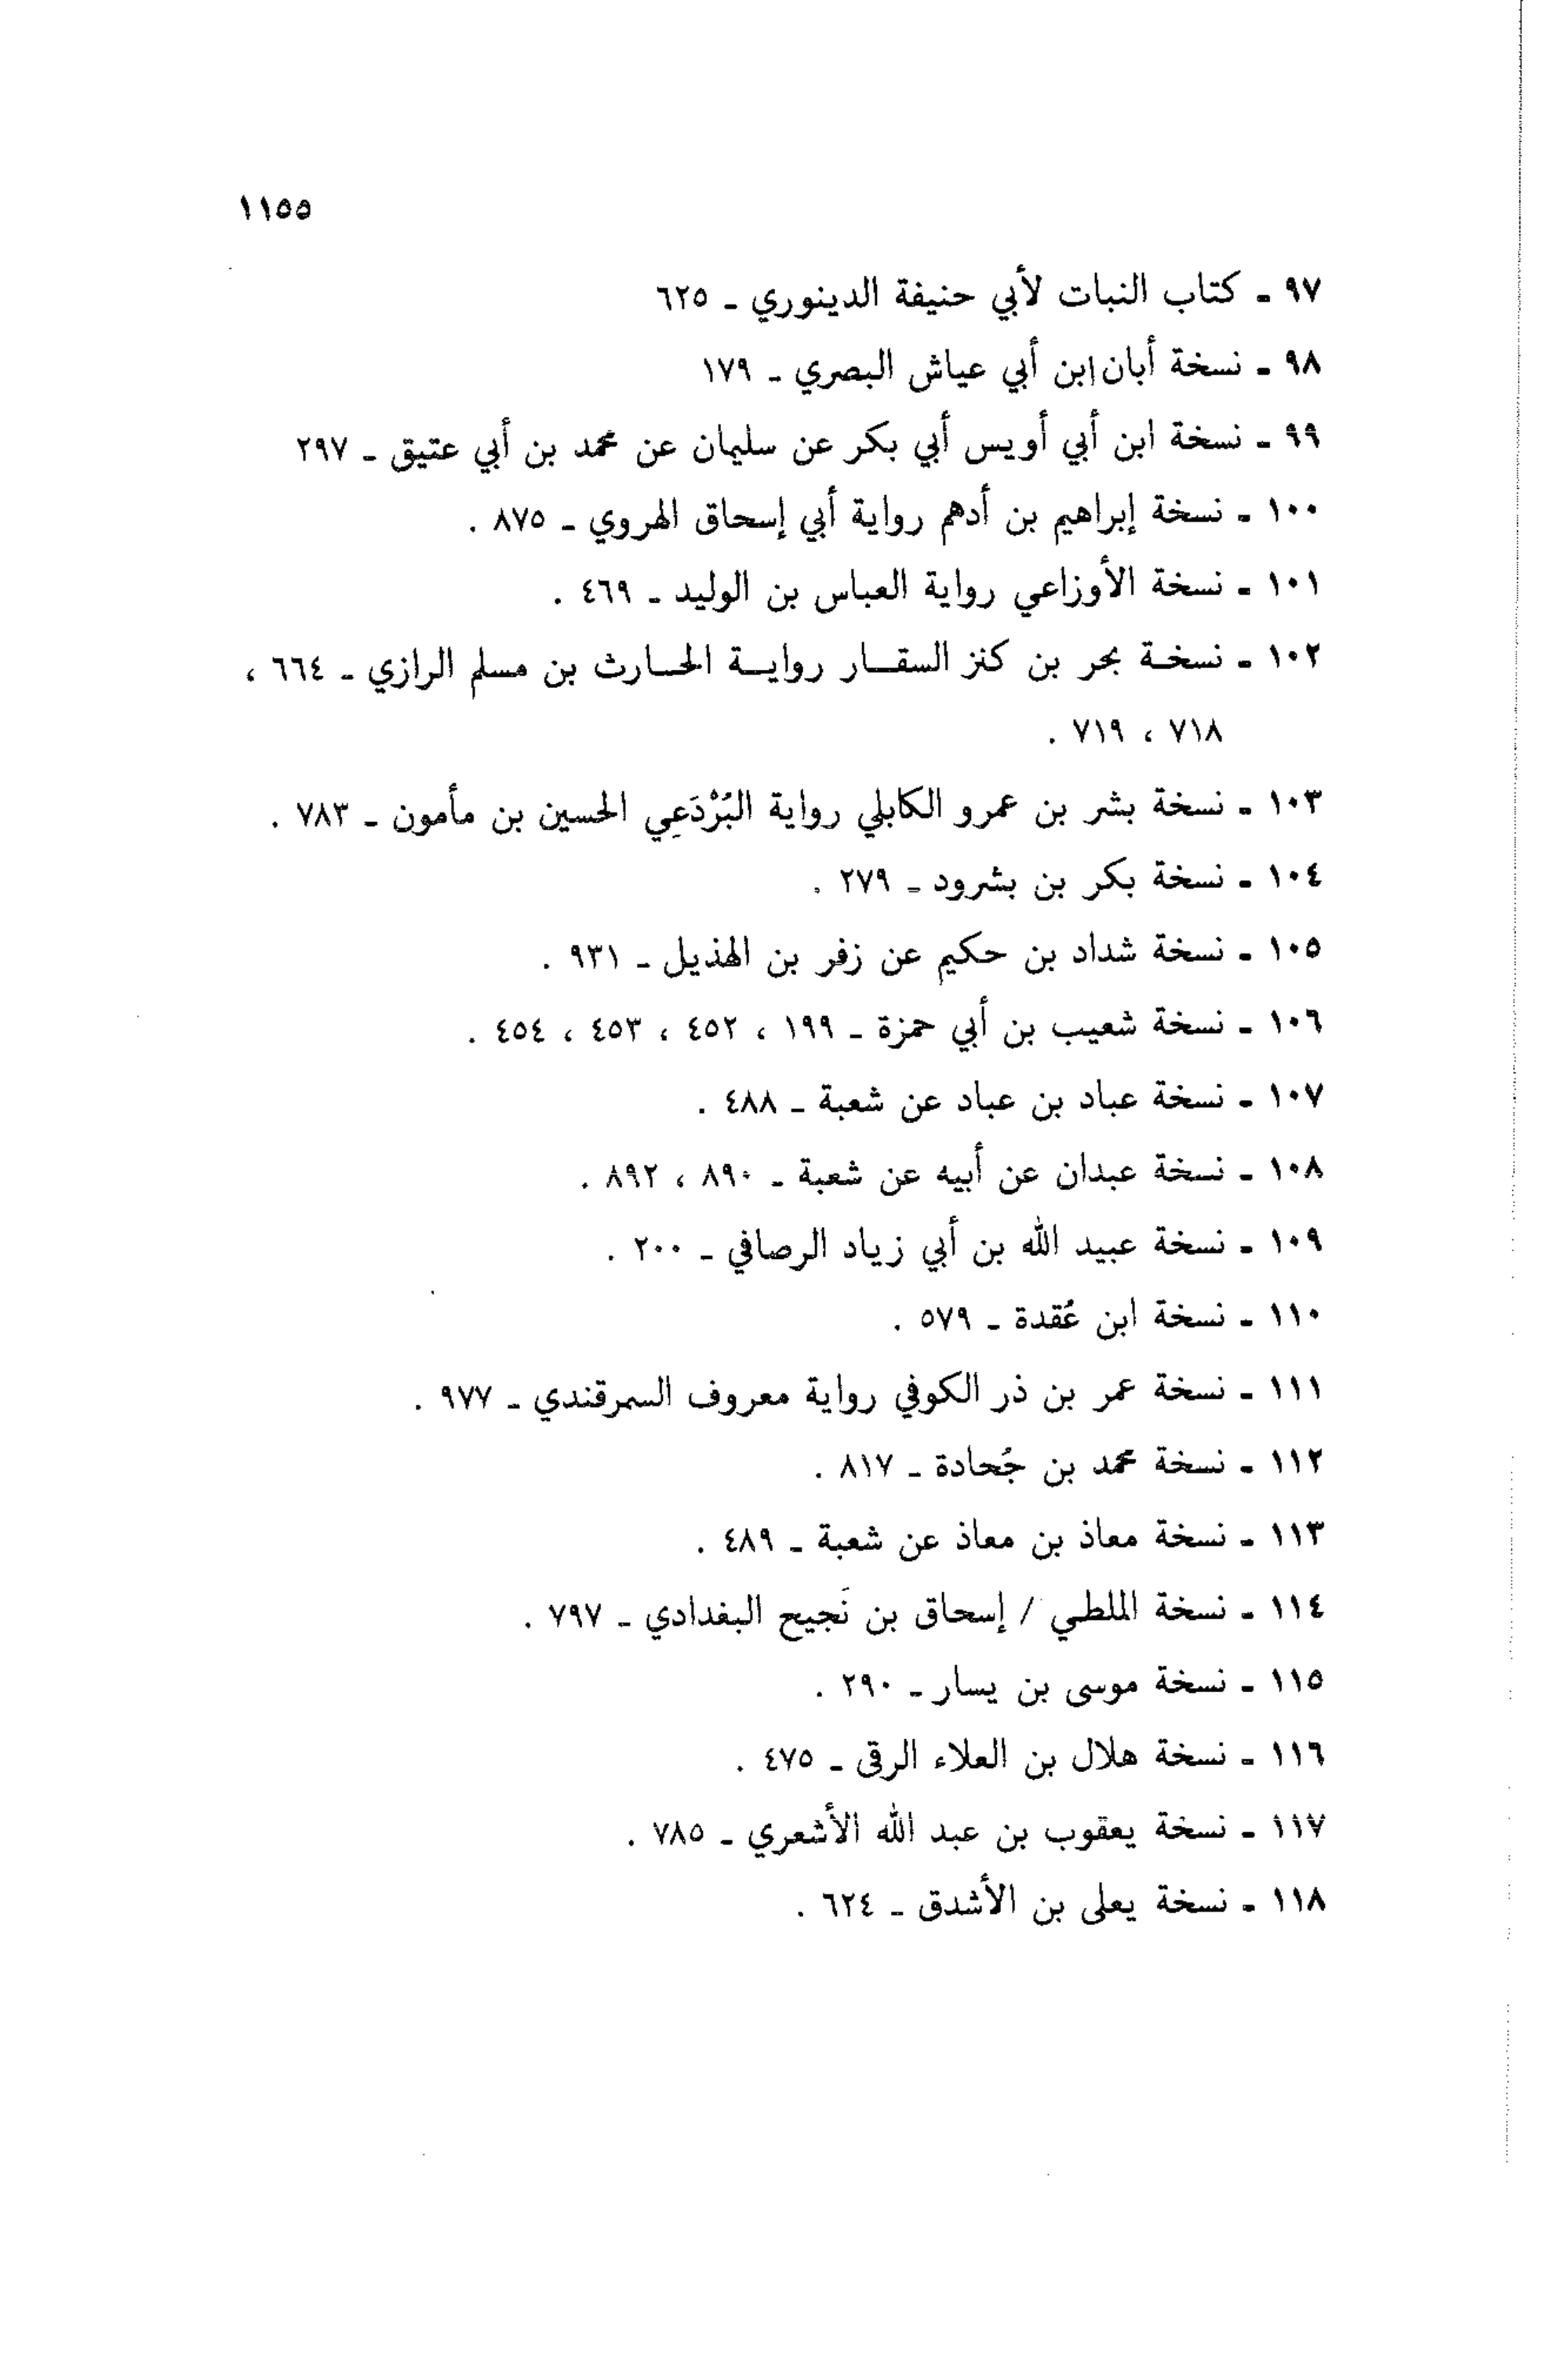 ١١٥٥
٩٧ ـ كتاب النبات لأبي حنيفة الدينوري ـ ٦٢٥
٩٨ ـ نسخة أبان ابن أبي عياش البصري ـ ١٧٩
٩٩ ـ نسخة ابن أبي أويس أبي بكر عن سليمان عن محمد بن أبي عتيق ـ ٢٩٧
١٠٠ ـ نسخة إبراهيم بن أدهم رواية أبي إسحاق الهروي ـ ٨٧٥ .
١٠١ ـ نسخة الأوزاعي رواية العباس بن الوليد ـ ٤٦٩ .
١٠٢ ـ نسخة بحر بن كنز السقار رواية الحارث بن مسلم الرازي ـ ٦٦٤ ،
٧١٨ ، ٧١٩ .
١٠٣ ـ نسخة بشر بن عمرو الكابلي رواية البُرْدَعِي الحسين بن مأمون ـ ٧٨٣ .
١٠٤ ـ نسخة بكر بن بشرود ـ ٢٧٩ .
١٠٥ ـ نسخة شداد بن حكيم عن زفر بن الهذيل ـ ٩٣١ .
١٠٦ ـ نسخة شعيب بن أبي حمزة ـ ١٩٩ ، ٤٥٢ ، ٤٥٣ ، ٤٥٤ .
١٠٧ ـ نسخة عباد بن عباد عن شعبة ـ ٤٨٨ .
١٠٨ ـ نسخة عبدان عن أبيه عن شعبة ـ ٨٩٠ ، ٨٩٢ .
١٠٩ ـ نسخة عبيد الله بن أبي زياد الرصافي ـ ٢٠٠ .
١١٠ ـ نسخة ابن عُقدة ـ ٥٧٩ .
١١١ ـ نسخة عمر بن ذر الكوفي رواية معروف السمرقندي ـ ٩٧٧ .
١١٢ ـ نسخة محمد بن جُحادة ـ ٨١٧ .
١١٣ ـ نسخة معاذ بن معاذ عن شعبة ـ ٤٨٩ .
١١٤ ـ نسخة الملطي / إسحاق بن نَجيح البغدادي ـ ٧٩٧ .
١١٥ ـ نسخة موسى بن يسار ـ ٢٩٠ .
١١٦ ـ نسخة هلال بن العلاء الرقى ـ ٤٧٥ .
١١٧ ـ نسخة يعقوب بن عبد الله الأشعري ـ ٧٨٥ .
١١٨ ـ نسخة يعلى بن الأشدق ـ ٦٢٤ .